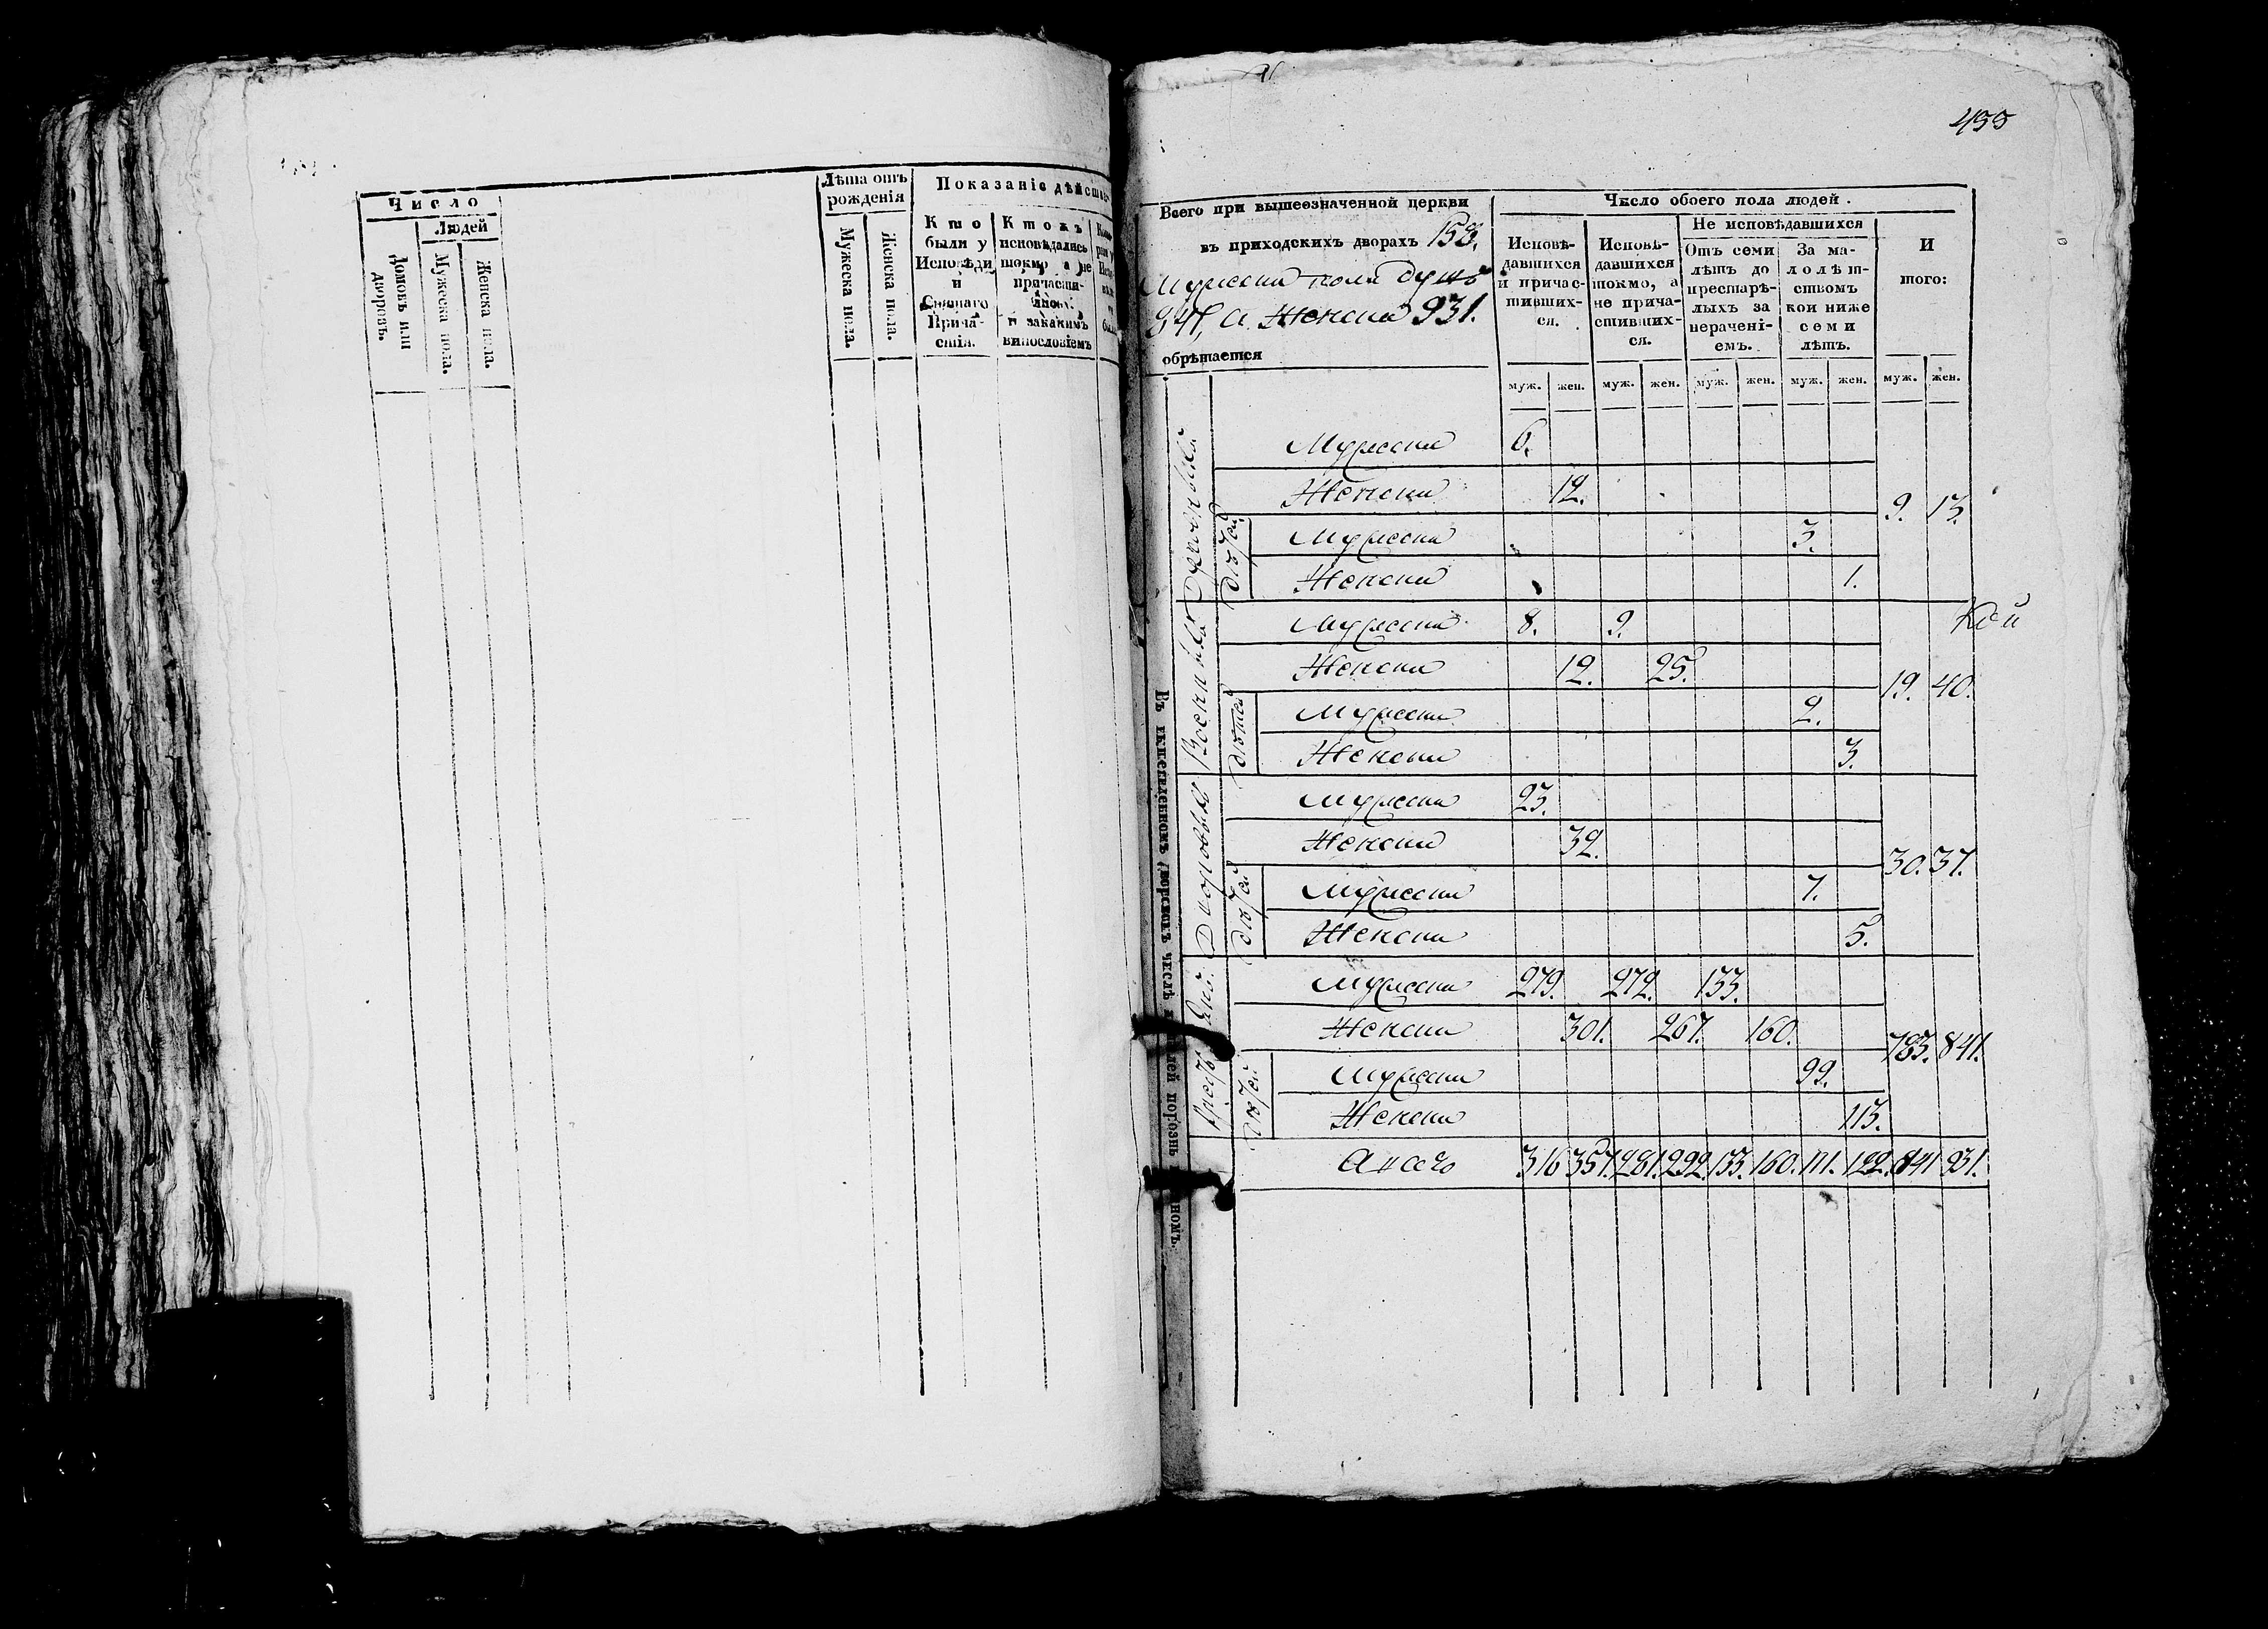 Число
Людей
Домовъ или дворовъ.
Мужеска пола.
Женска пола.
Лѣта отъ рожденія
Мужеска пола.
Женска пола.
Показаніе дѣйств
Кто были у Исповѣди и Святаго Прича-стія.
Ктожъ исповѣдались токмо а не причасти-лись. и закакимъ винословіемъ
433
Всего при вышеозначенной церкви
въ приходскихъ дворахъ 153,
Мужеска пола душъ
841, а Женска 931.
обрѣтается
Число обоего пола людей.
Исповѣ-давшихся и причас-тивших-ся.
Исповѣ-давшихся токмо, а не прича-стивших-ся.
Не исповѣдавшихся
Отъ семи лѣтъ до престарѣ-лыхъ за нерачені-емъ.
За ма-лолѣт-ствомъ кои ниже семи лѣтъ.
И того:
муж. жен. муж. жен. муж. жен. муж. жен. муж. жен.
Духовныхъ
Мужеска 6.
Женска 12.
9. 13.
дѣтей
Мужеска 3.
Женска 1.
Военныхъ
Мужеска 8. 9.
Женска 12. 25.
19. 40.
дѣтей
Мужеска 2.
Женска 3.
Дворовыхъ
Мужеска 23.
Женска 32.
30. 37.
дѣтей
Мужеска 7.
Женска 5.
Мужеска 279. 272. 133.
Женска 301. 267. 160.
783. 841.
дѣтей
Мужеска 99.
Женска 113.
А всего 316 357. 281. 292. 133. 160. 111. 122. 841 931.